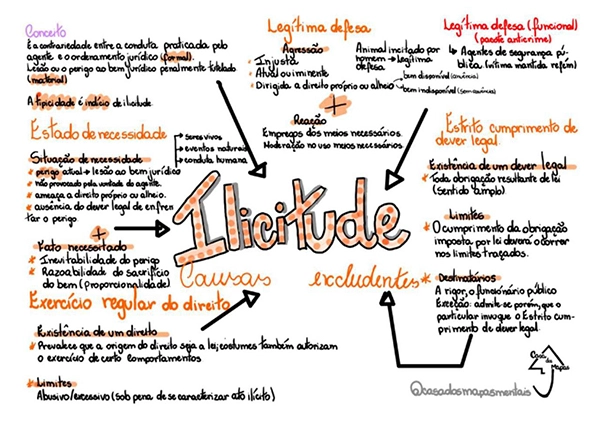 Conceito
É a contrariedade entre a conduta praticada pelo
agente e o ordenamento jurídico (formal).
Lesão ou o perigo ao bem jurídico penalmente tutelado
(material)
A tipicidade é indício de ilicitude.
Estado de necessidade
→ seres vivos
→ eventos naturais
→ conduta humana
Situação de necessidade
* perigo atual → lesão ao bem jurídico
* não provocado pela vontade do agente.
* ameaça a direito próprio ou alheio.
* ausência do dever legal de enfren
tar o perigo
+
Fato necessitado
* Inevitabilidade do perigo
* Razoabilidade do sacrifício
do bem (proporcionalidade)
Exercício regular do direito
Existência de um direito
* Prevalece que a origem do direito seja a lei; costumes também autorizam
o exercício de certo comportamentos
* Limites
Abusivo/excessivo (sob pena de se caracterizar ato ilícito)
Legítima defesa
Agressão
Injusta
Atual ou iminente
Dirigida a direito próprio ou alheio
bem disponível
bem indisponível
Animal incitado por
homem → legítima
defesa
+
Reação
Empregos dos meios necessários.
Moderação no uso meios necessários.
Legítima defesa (funcional)
(pacote anticrime)
* Agentes de segurança pú-
blica (vítima mantida refém)
Estrito cumprimento de
dever legal
Existência de um dever legal
* Toda obrigação resultante de lei
(sentido amplo)
Limites
* O cumprimento da obrigação
imposta por lei deverá ocorrer
nos limites traçados.
* Destinatários
A rigor, o funcionário público
Exceção: admite-se porém, que o
particular invoque o Estrito cum-
primento de dever legal.
Ilicitude
Causas excludentes
Casa
de
Mapas
@casadosmapasmentais